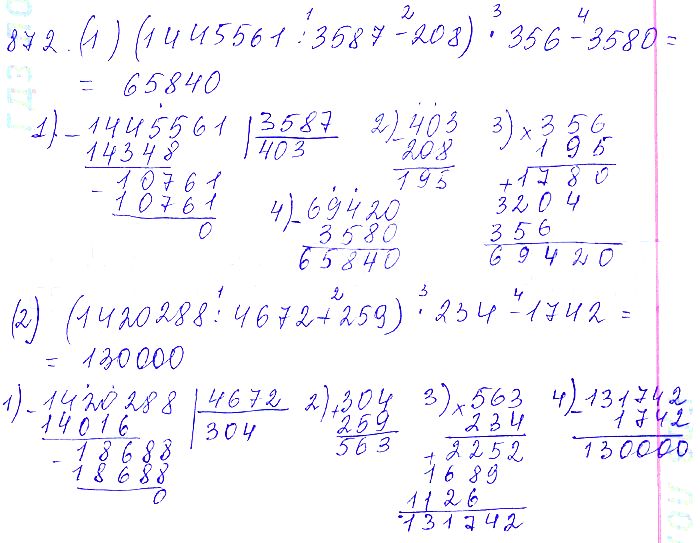 872. (1) (1445561 : 3587 - 208) · 356 - 3580 =
= 65840
1) - 1445561 | 3587
14348 403
- 10761
10761
0
2) - 403
208
195
3) × 356
195
+ 1780
3204
356
69420
4) - 69420
3580
65840
(2) (1420288 : 4672 + 259) · 234 - 1742 =
= 130000
1) - 1420288 | 4672
14016 304
- 18688
18688
0
2) + 304
259
563
3) × 563
234
+ 2252
1689
1126
131742
4) - 131742
1742
130000